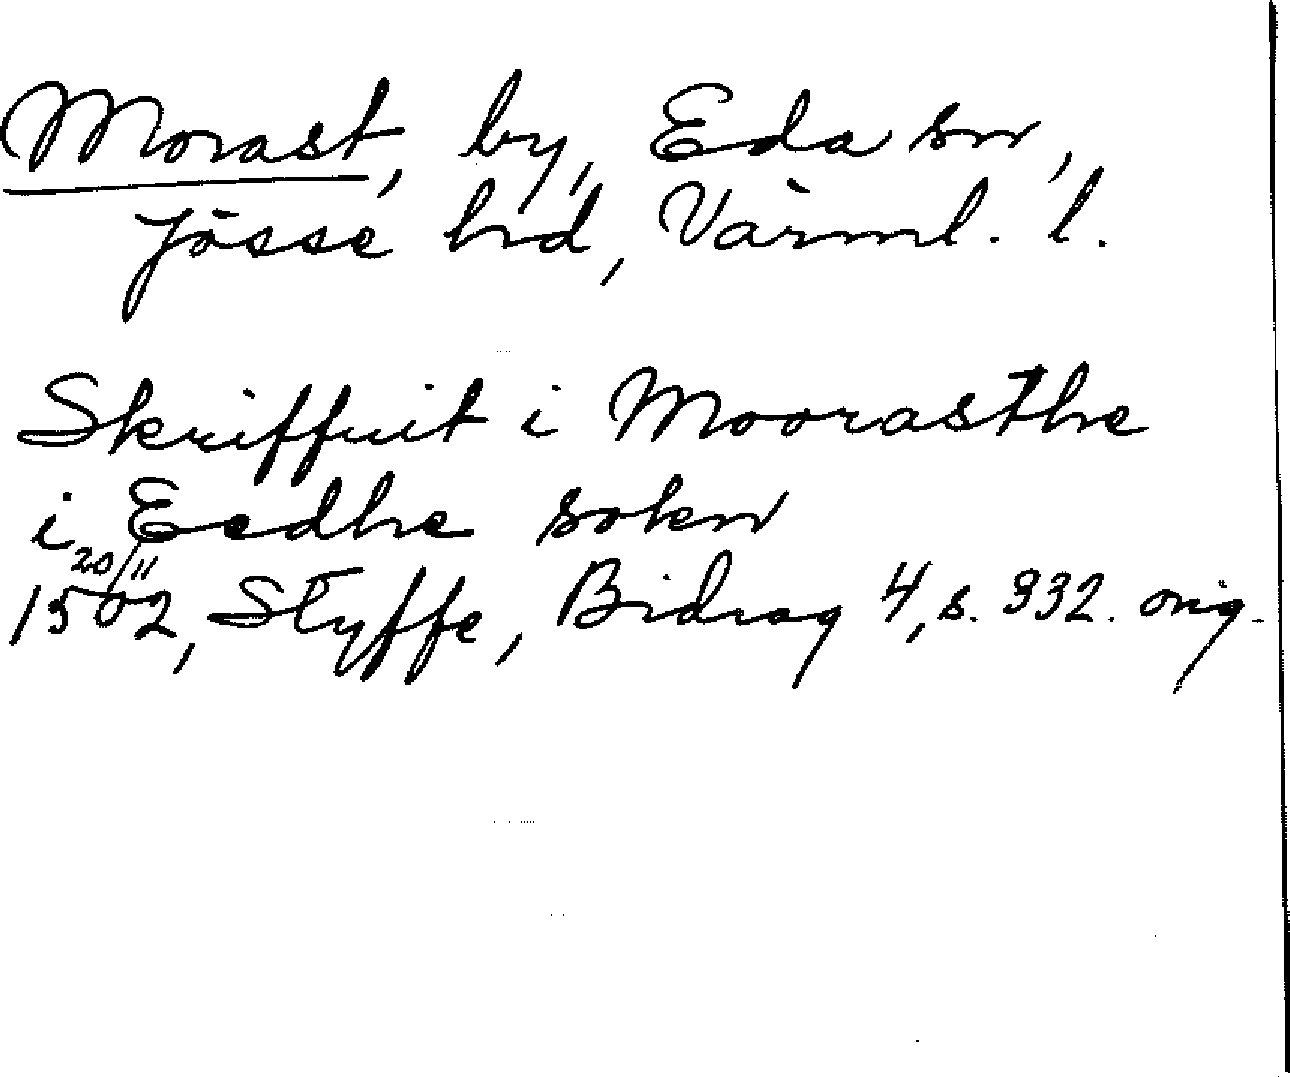 Morast, by, Eda sn,
Jösse hd, Värml. l.
Skriffuit i Moorasthe
i Eedhe soken
20/11
1502, Styffe, Bidrag 4, s. 332. orig.